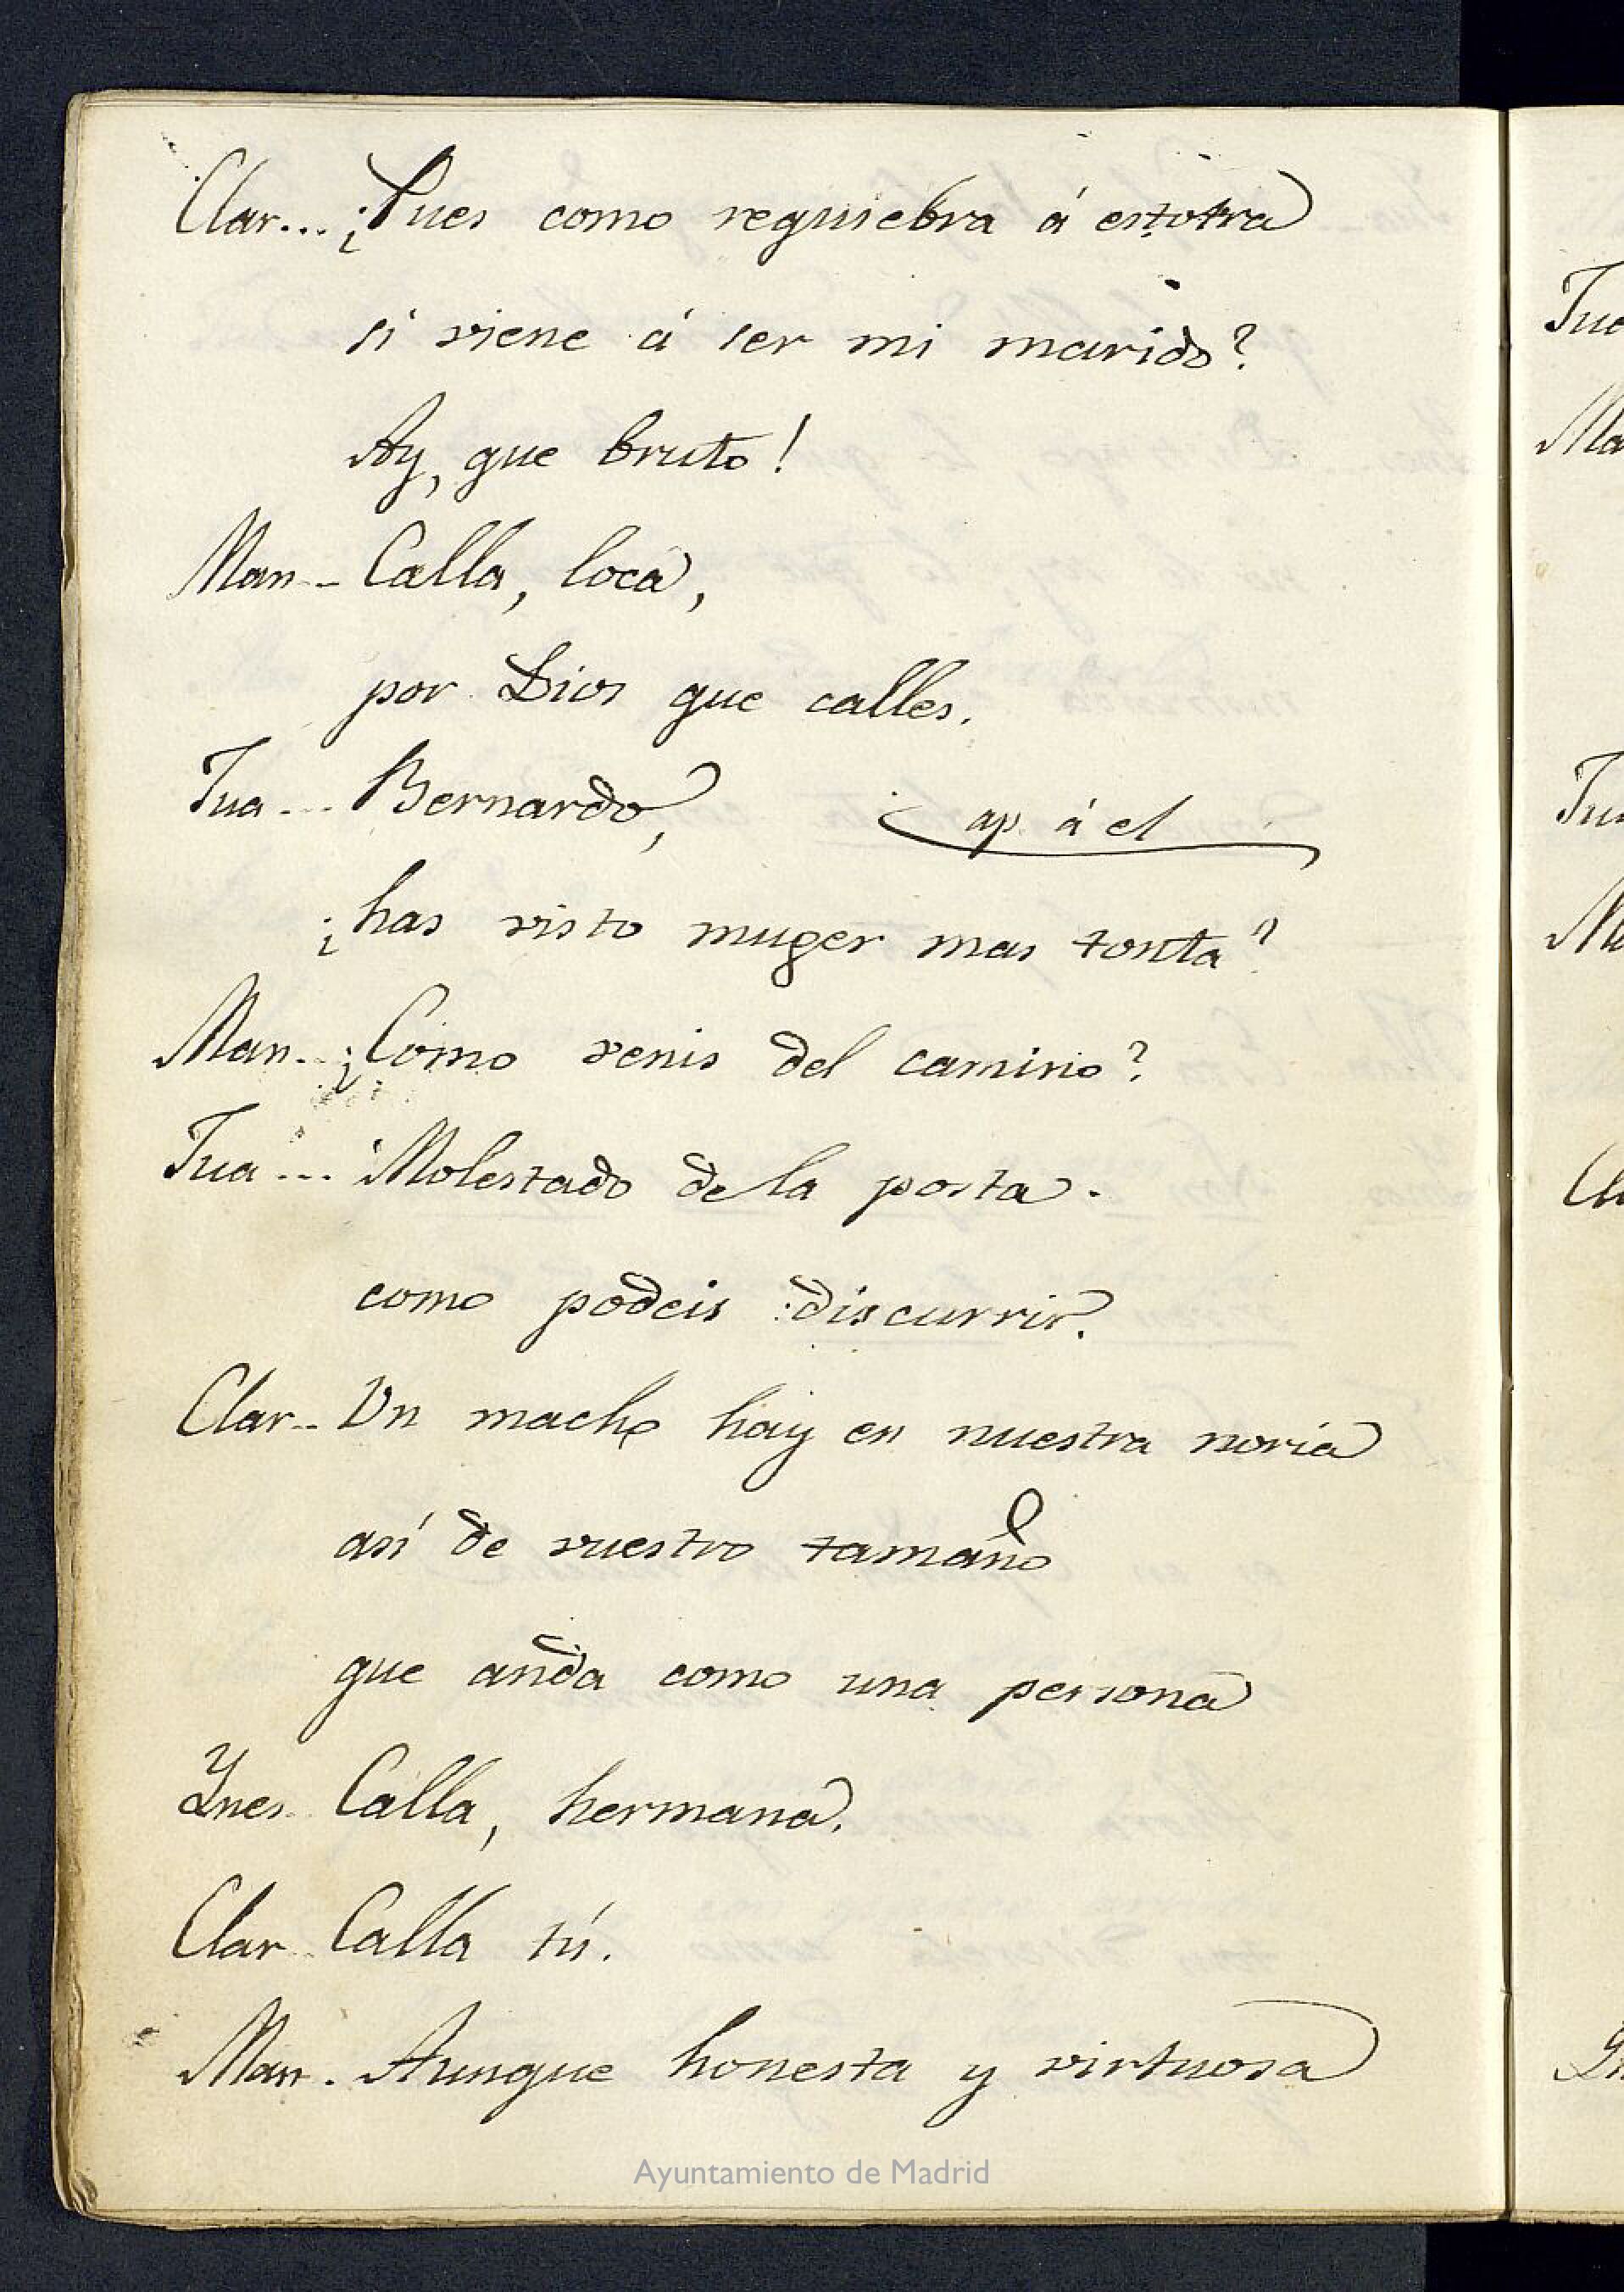 Clar... ¿Pues como requiebra á estotra
si viene á ser mi marido?
Ay, que bruto!
Man-- Calla, loca,
por Dios que calles.
Jua... Bernardo, ap. á el
¿has visto muger mas tonta?
Man.. ¿Como venis del camino?
Jua... Molestado de la posta.
como podeis discurrir.
Clar.. Un macho hay en nuestra noria
así de vuestro tamaño
que anda como una persona
Ynes. Calla, hermana.
Clar. Calla tú.
Man. Aunque honesta y virtuosa
Ayuntamiento de Madrid